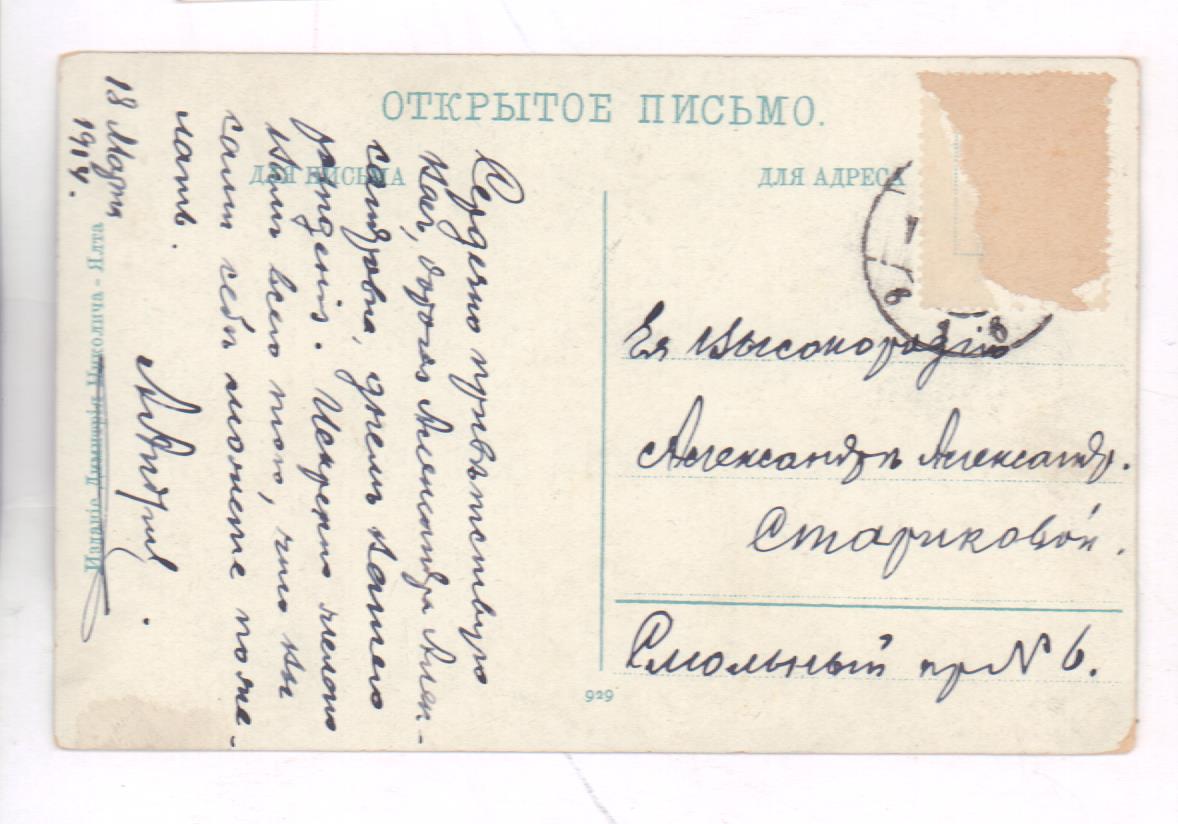 ОТКРЫТОЕ ПИСЬМО.
ДЛЯ ПИСЬМА
ДЛЯ АДРЕСА
Сердечно привѣтствую
Вас, дорогая Александра Алек-
сандровна, с днемъ Вашего
рожденія. Искренно желаю
Вамъ всего того, чего Вы
сами себѣ можете поже-
лать.
18 Марта
1914.
Ея Высокородію
Александрѣ Александр.
Стариковой.
Смольный пр № 6.
929
Изданіе Димитрія Николича - Ялта